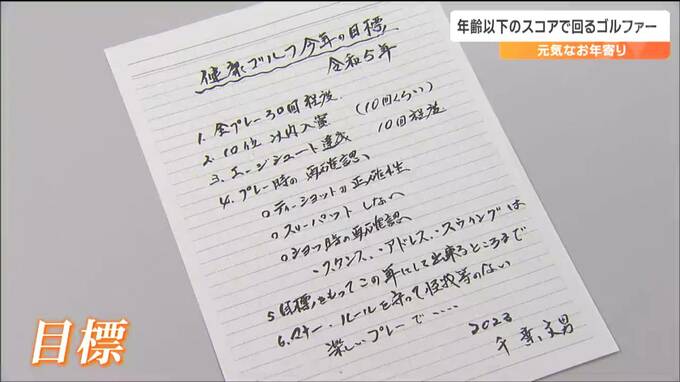 年齢以下のスコアで回るゴルファー
元気なお年寄り
健康ゴルフ今年の目標
令和5年
1. 全プレー30回程度
2. 10位以内入賞 (10回くらい)
3. エージシュート達成 10回程度
4. プレー時の再確認
○ティーショットの正確性
○スリーパットしない
○ショット時の再確認
・スタンス・アドレス・スウィングは
5 目標をもってこの年にして出来るところまで
6. マナー、ルールを守って怪我等のない
楽しいプレーで・・・・
2023
千葉文男
目標